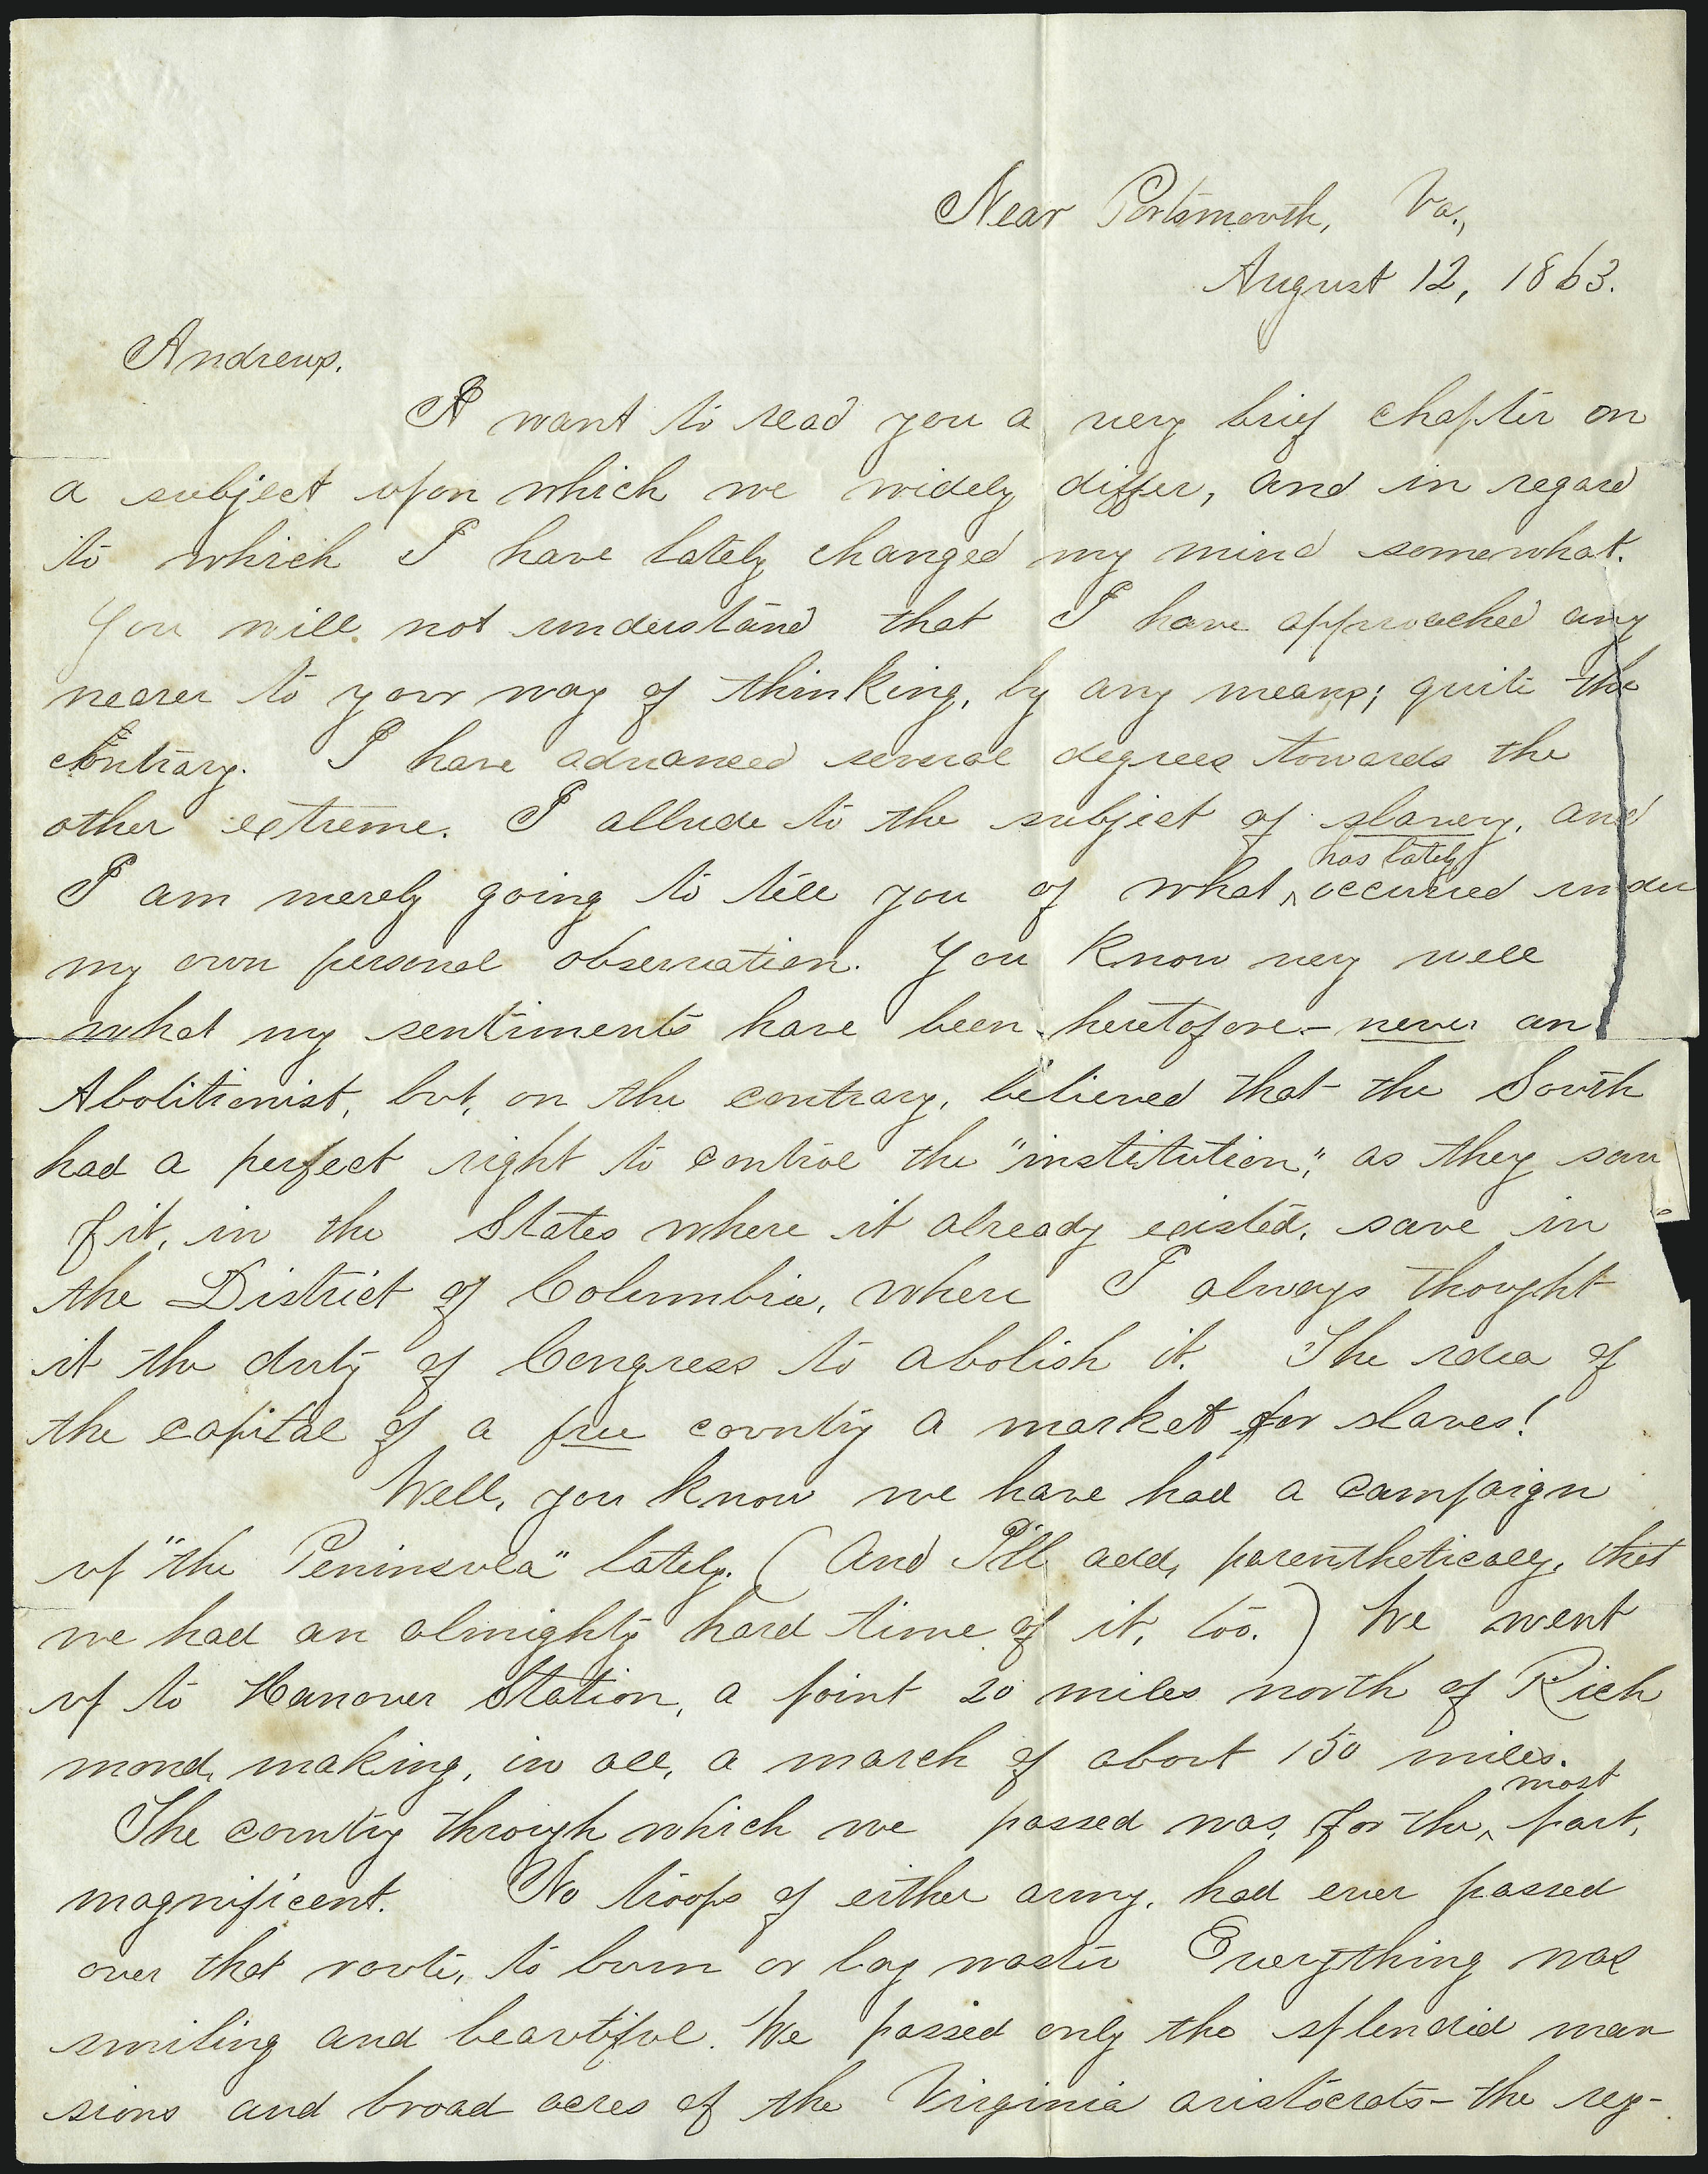 Near Portsmouth, Va.,
August 12, 1863.
Andrews.
I want to read you a very brief chapter on
a subject upon which we widely differ, and in regard
to which I have lately changed my mind somewhat.
You will not understand that I have approached any
nearer to your way of thinking, by any means; quite the
contrary. I have advanced several degrees towards the
other extreme. I allude to the subject of slavery, and
has lately
I am merely going to tell you of what ‸ occurred under
my own personal observation. You know very well
what my sentiments have been heretofore - never an
Abolitionist, but, on the contrary, believed that the South
had a perfect right to control the "institution," as they saw
fit, in the States where it already existed, save in
the District of Columbia, where I always thought
it the duty of Congress to abolish it. The idea of
the capital of a free country a market for slaves!
Well, you know we have had a campaign
up "the Peninsula" lately. (And I'll add, parenthetically, that
we had an almighty hard time of it, too.) We went
up to Hanover Station, a point 20 miles north of Rich
mond, making, in all, a march of about 150 miles.
most
The country through which we passed was, for the ‸ part,
magnificent. No troops of either army, had ever passed
over that route, to burn or lay waste Everything was
smiling and beautiful. We passed only the splendid man
sions and broad acres of the Virginia aristocrats - the reg-